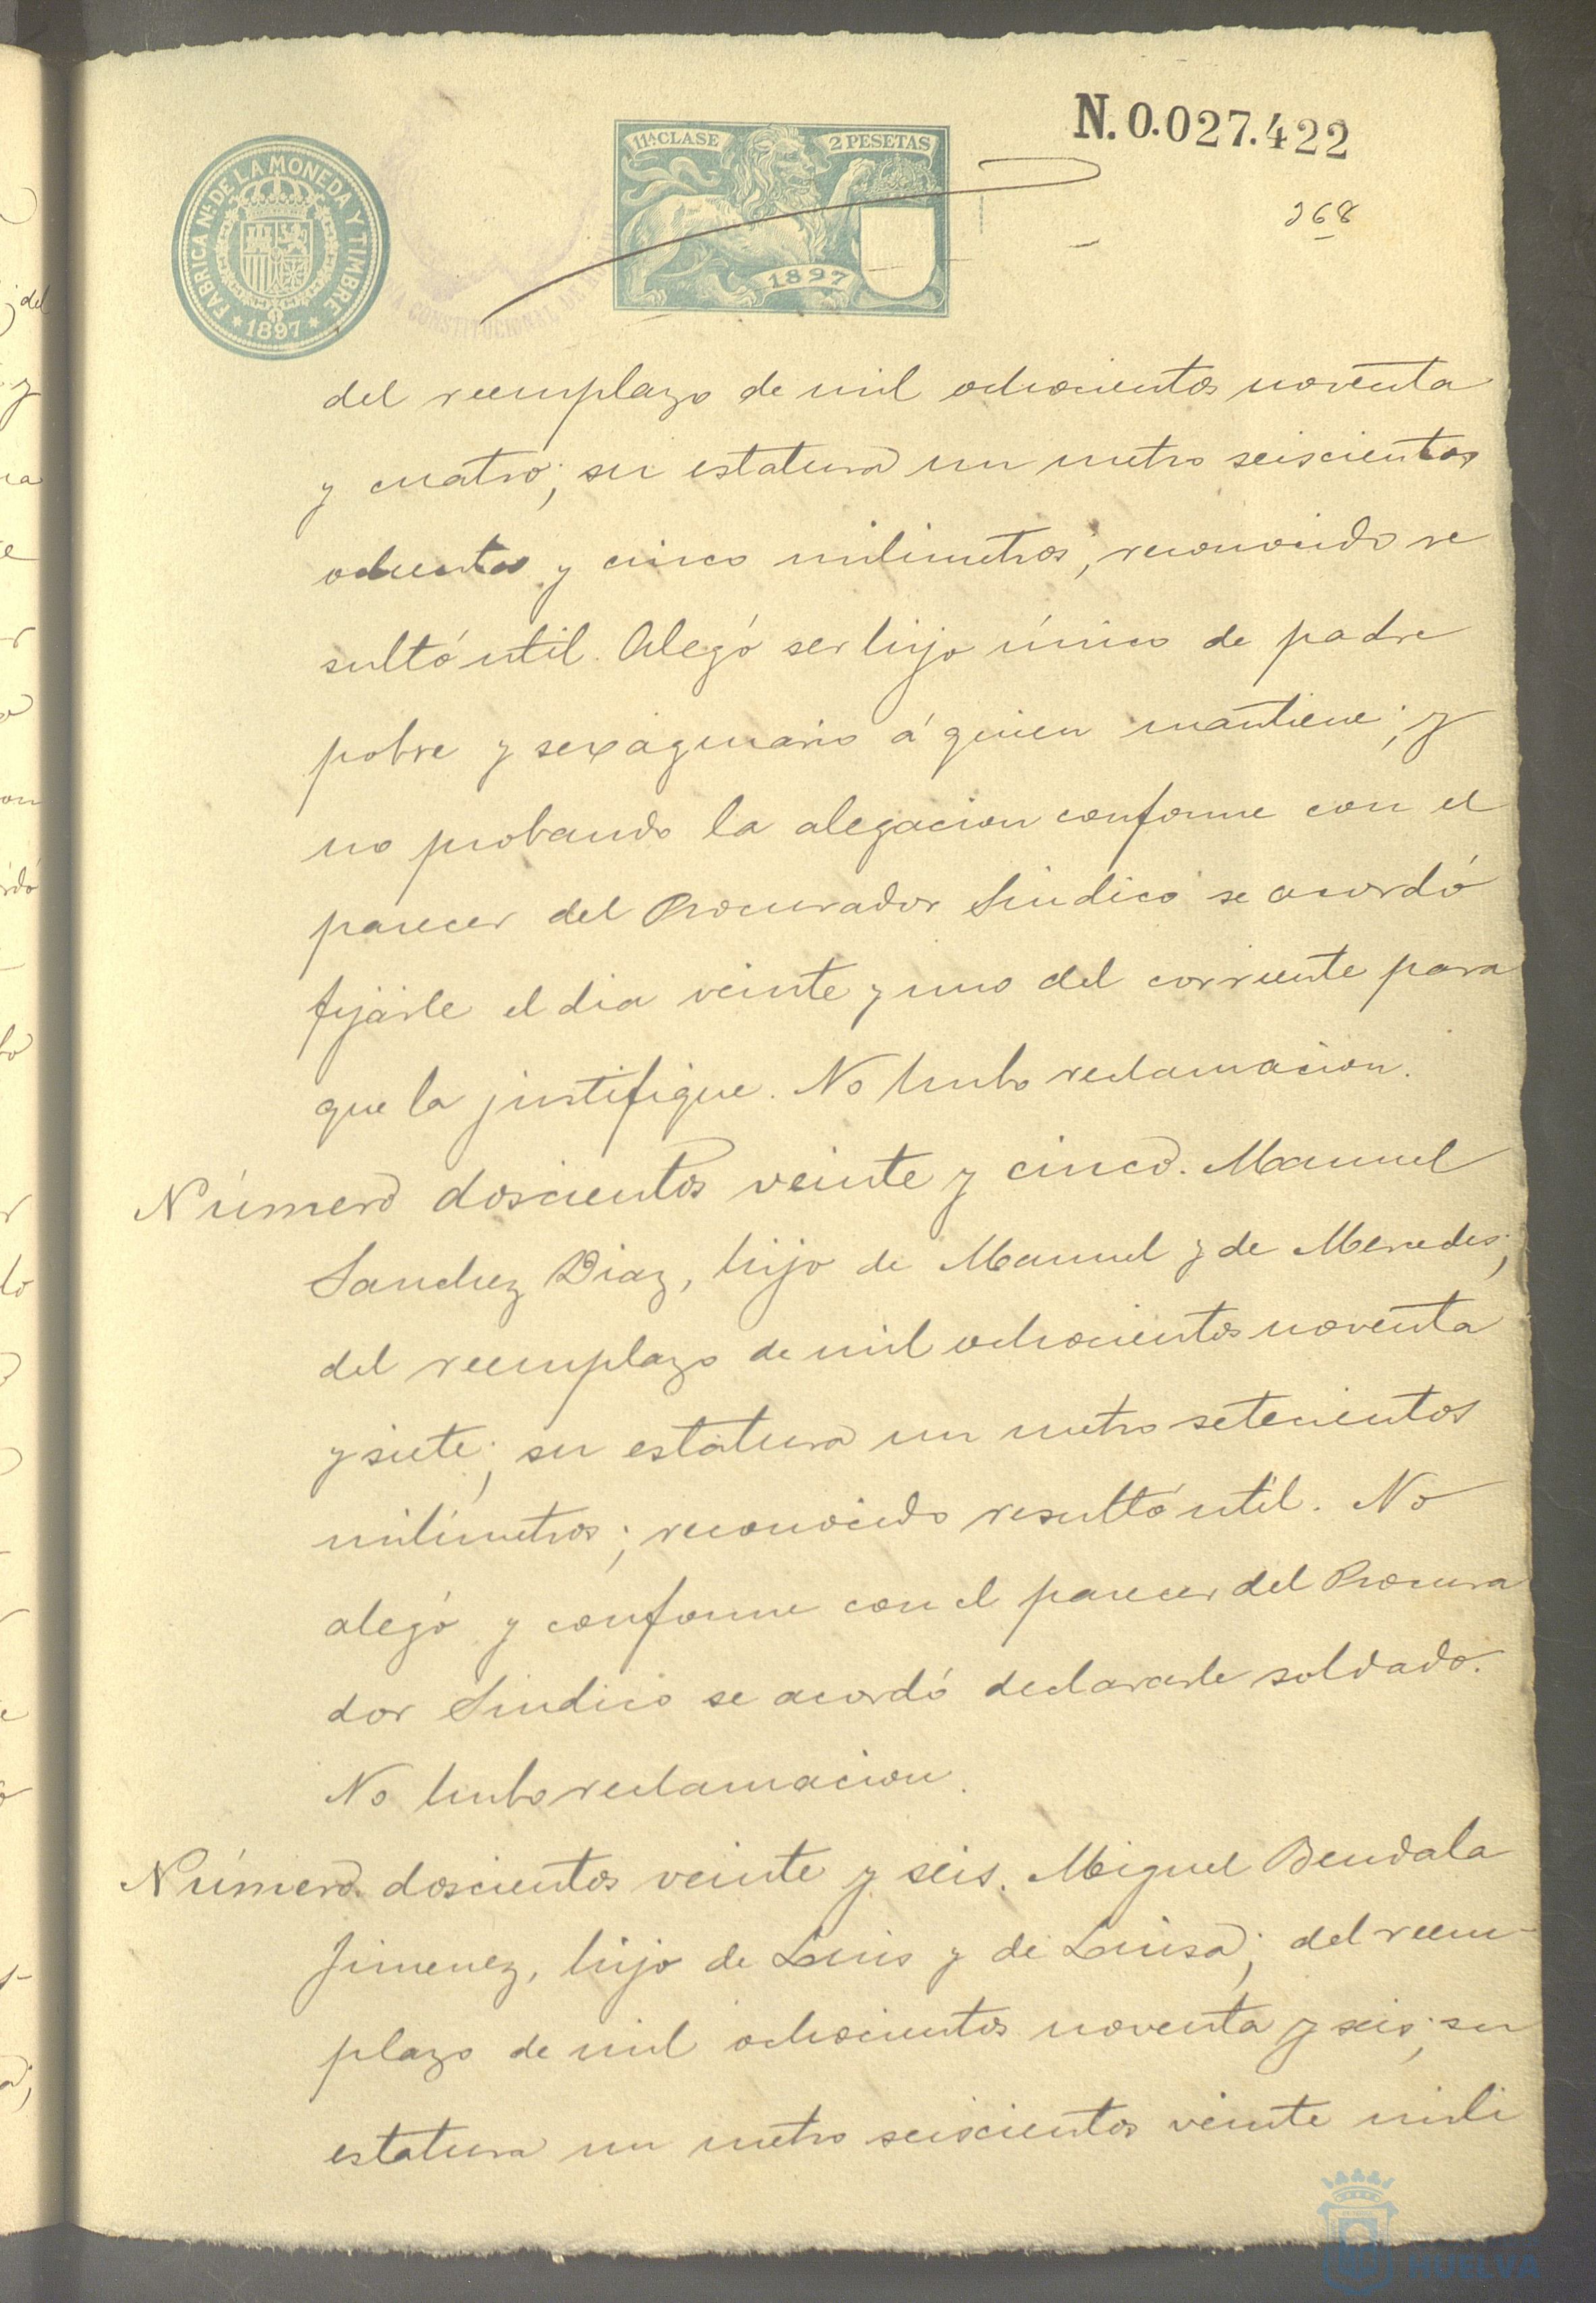 N. 0.027.422
11ª CLASE
2 PESETAS
1897
FABRICA Nal DE LA MONEDA Y TIMBRE
* 1897 *
CONSTITUCIONAL DE
268
del reemplazo de mil ochocientos noventa
y cuatro; su estatura un metro seiscientos
ochenta y cinco milimetros; reconocido re
sultó util. Alegó ser hijo único de padre
pobre y sexagenario á quien mantiene; y
no probando la alegacion conforme con el
parecer del Procurador Sindico se acordó
fijarle el dia veinte y uno del corriente para
que la justifique. No hubo reclamacion.
Número doscientos veinte y cinco. Manuel
Sanchez Diaz, hijo de Manuel y de Mercedes;
del reemplazo de mil ochocientos noventa
y siete; su estatura un metro setecientos
milimetros; reconocido resultó util. No
alegó y conforme con el parecer del Procura
dor Sindico se acordó declararle soldado.
No hubo reclamacion.
Número doscientos veinte y seis. Miguel Bendala
Jimenez, hijo de Luis y de Luisa; del reem-
plazo de mil ochocientos noventa y seis; su
estatura un metro seiscientos veinte mili
HUELVA